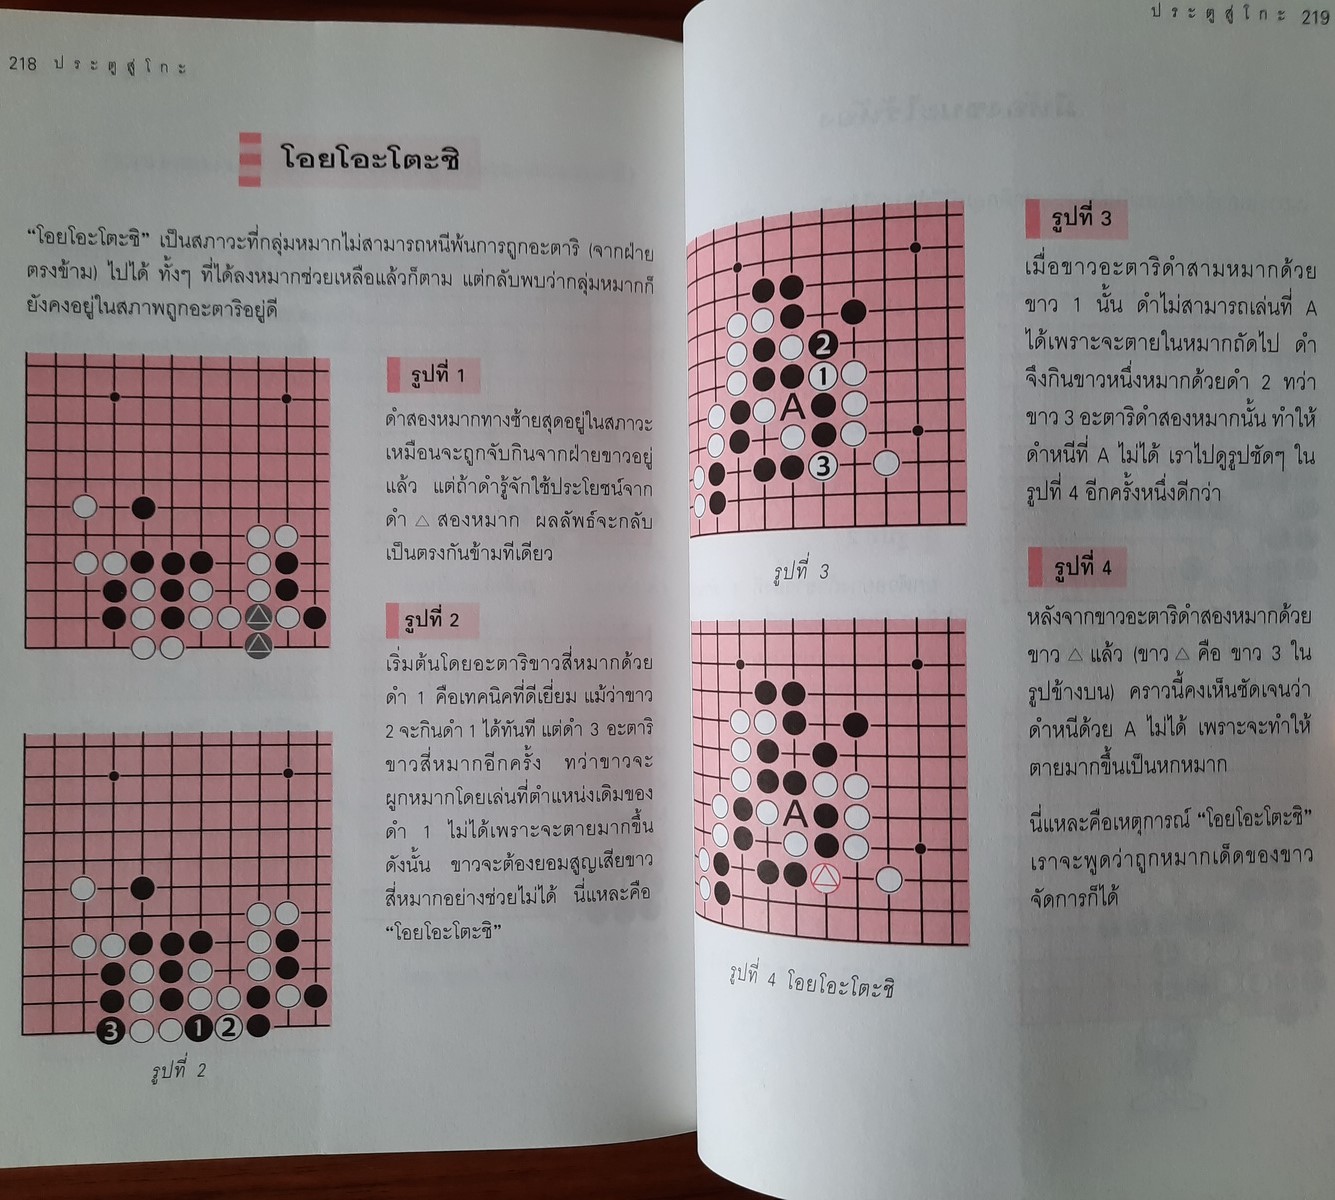 218 ประตูสู่โกะ
โอยโอะโตะชิ
“โอยโอะโตะชิ” เป็นสภาวะที่กลุ่มหมากไม่สามารถหนีพ้นการถูกอะตาริ (จากฝ่าย
ตรงข้าม) ไปได้ ทั้งๆ ที่ได้ลงหมากช่วยเหลือแล้วก็ตาม แต่กลับพบว่ากลุ่มหมากก็
ยังคงอยู่ในสภาพถูกอะตาริอยู่ดี
รูปที่ 1
ดำสองหมากทางซ้ายสุดอยู่ในสภาวะ
เหมือนจะถูกจับกินจากฝ่ายขาวอยู่
แล้ว แต่ถ้าดำรู้จักใช้ประโยชน์จาก
ดำ △ สองหมาก ผลลัพธ์จะกลับ
เป็นตรงกันข้ามทีเดียว
รูปที่ 2
เริ่มต้นโดยอะตาริขาวสี่หมากด้วย
ดำ 1 คือเทคนิคที่ดีเยี่ยม แม้ว่าขาว
2 จะกินดำ 1 ได้ทันที แต่ดำ 3 อะตาริ
ขาวสี่หมากอีกครั้ง ทว่าขาวจะ
ผูกหมากโดยเล่นที่ตำแหน่งเดิมของ
ดำ 1 ไม่ได้เพราะจะตายมากขึ้น
ดังนั้น ขาวจะต้องยอมสูญเสียขาว
สี่หมากอย่างช่วยไม่ได้ นี่แหละคือ
“โอยโอะโตะชิ”
3 1 2
รูปที่ 2
ประตูสู่โกะ 219
2
1
A
3
รูปที่ 3
รูปที่ 3
เมื่อขาวอะตาริดำสามหมากด้วย
ขาว 1 นั้น ดำไม่สามารถเล่นที่ A
ได้เพราะจะตายในหมากถัดไป ดำ
จึงกินขาวหนึ่งหมากด้วยดำ 2 ทว่า
ขาว 3 อะตาริดำสองหมากนั้น ทำให้
ดำหนีที่ A ไม่ได้ เราไปดูรูปชัดๆ ใน
รูปที่ 4 อีกครั้งหนึ่งดีกว่า
A
รูปที่ 4 โอยโอะโตะชิ
รูปที่ 4
หลังจากขาวอะตาริดำสองหมากด้วย
ขาว △ แล้ว (ขาว △ คือ ขาว 3 ใน
รูปข้างบน) คราวนี้คงเห็นชัดเจนว่า
ดำหนีด้วย A ไม่ได้ เพราะจะทำให้
ตายมากขึ้นเป็นหกหมาก
นี่แหละคือเหตุการณ์ “โอยโอะโตะชิ”
เราจะพูดว่าถูกหมากเด็ดของขาว
จัดการก็ได้